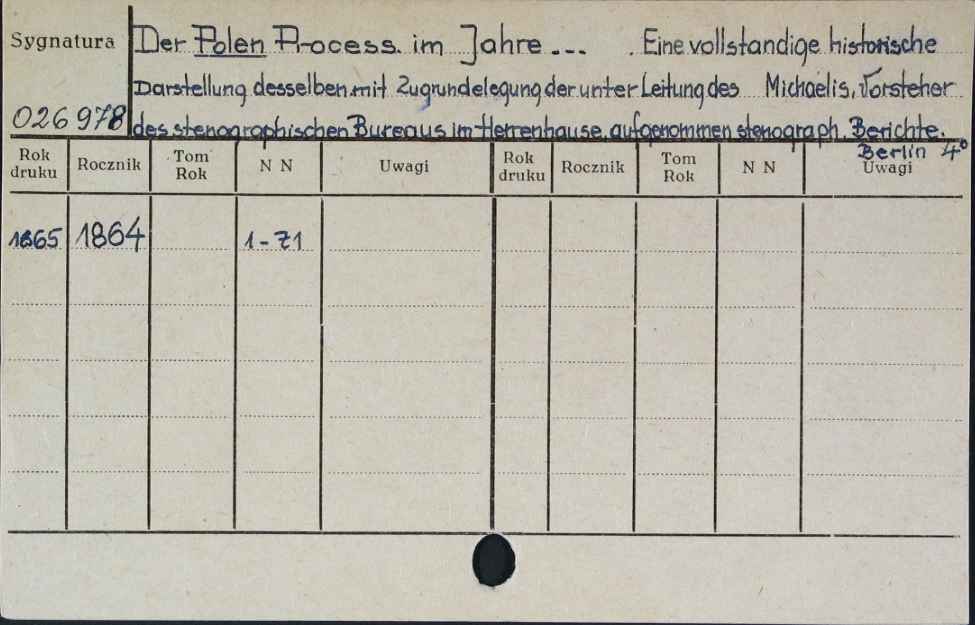 Sygnatura
026978
Der Polen Process. im Jahre ... . Eine vollstandige historische
Darstellung desselben mit Zugrundelegung der unter Leitung des Michaelis, Vorsteher
des stenographischen Bureaus im Herrenhause, aufgenommen stenograph. Berichte.
Berlin 4°
Rok druku Rocznik Tom Rok N N Uwagi Rok druku Rocznik Tom Rok N N Uwagi
1865 1864 1-71